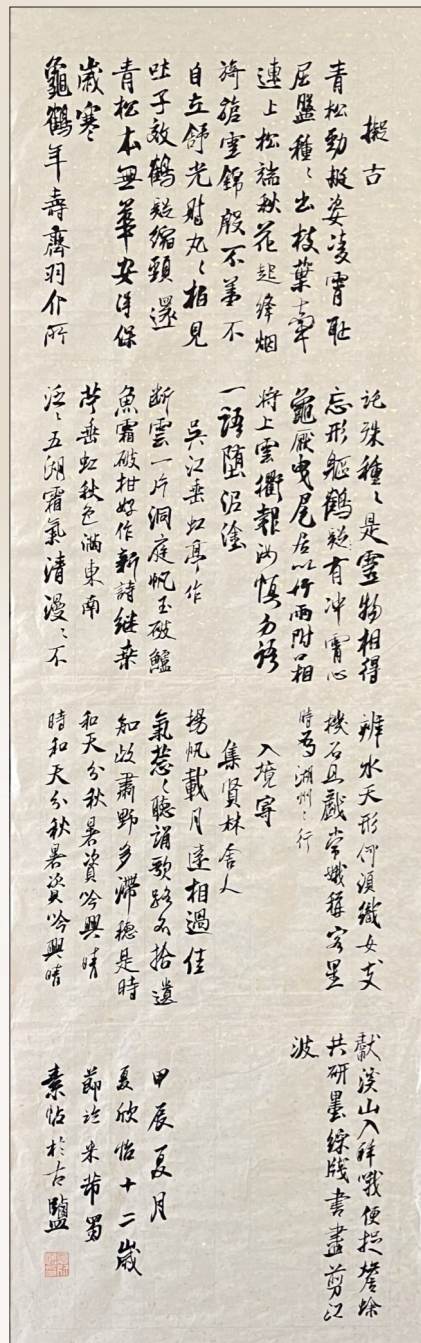 擬古
青松勁挺姿凌霄耻
屈盤種々出枝葉牽
連上松端秋花起絳烟
旖旎雲錦殷不羞不
自立舒光射丸々柏見
吐子效鶴疑縮頸還
青松本無華安得保
歲寒々
龜鶴年壽齊羽介所
託殊種々是靈物相得
忘形軀鶴疑有冲霄心
龜厭曳尾居以竹兩附口相
將上雲衢報汝慎勿語
一語墮泥塗
吳江垂虹亭作
断雲一片洞庭帆玉破鱸
魚霜破柑好作新詩継桑
苧垂虹秋色滿東南
泛々五湖霜氣清漫々不
辨水天形何須織女支
機石且戲常娥稱客星
時為湖州之行
入境寄
集賢林舍人
揚帆載月遠相過佳
氣葱々聽誦歌路不拾遺
知政肅野多滯穗是時
和天分秋暑資吟興晴
時和天分秋暑資吟興晴
獻溪山入醉哦便捉蟾蜍
共研墨綵牋書盡剪江
波
甲辰夏月
夏欣怡十二歲
節臨米芾蜀
素帖於古鹽